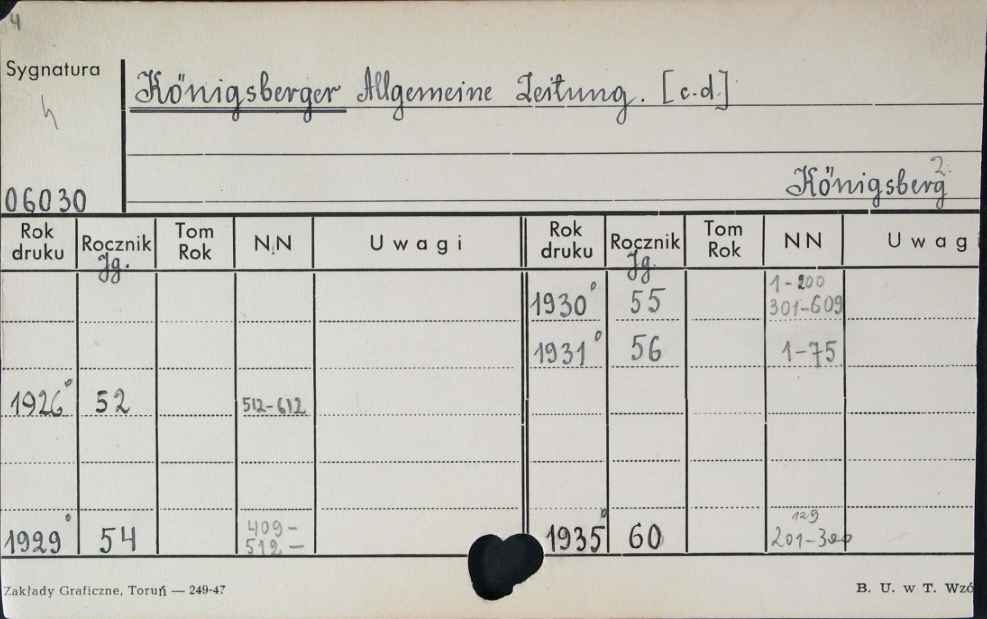 4
Sygnatura
Königsberger Allgemeine Zeitung. [c.d.]
2.
Königsberg
06030
Rok druku Rocznik Jg. Tom Rok NN Uwagi Rok druku Rocznik Jg. Tom Rok NN Uwag
1930° 55 1-200
301-609
1931° 56 1-75
1926° 52 512-612
1929° 54 409-
512-
1935° 60 129
201-300
Zakłady Graficzne, Toruń — 249-47
B. U. w T. Wzó